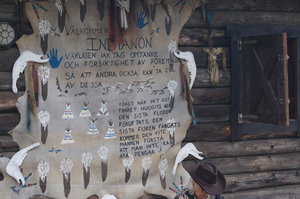 VÄLKOMMEN
INDIANON
VÄNLIGEN IAKTAG OMTANKE
OCH FÖRSIKTIGHET AV FÖREMÅLEN
SÅ ATT ANDRA OCKSÅ KAN TA DEL
AV DESSA
FÖRST NÄR DET SISTA
TRÄDET HUGGITS NER
DEN SISTA FLODEN
FÖRGIFTATS DEN
SISTA FISKEN FÅNGATS
KOMMER DEN VITE
MANNEN FÖRSTÅ
ATT MAN INTE KAN
ÄTA PENGAR